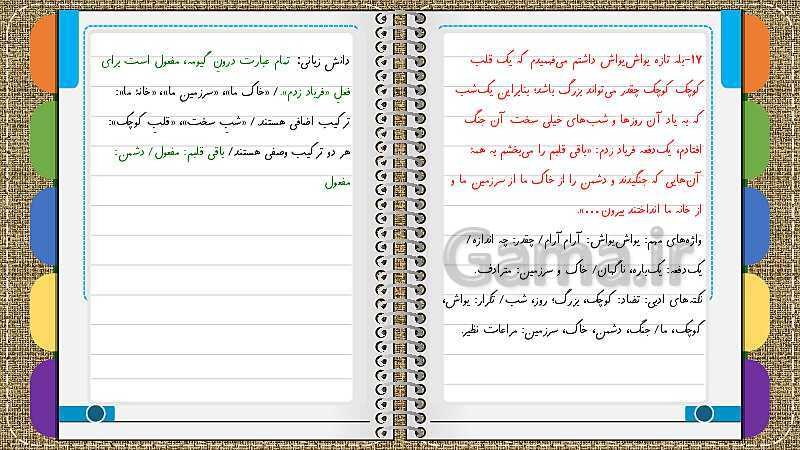 ۱۷-بله تازه یواش‌یواش داشتم می‌فهمیدم که یک قلب
کوچک کوچک چقدر می‌تواند بزرگ باشد؛ بنابراین یک‌شب
که به یاد آن روزها و شب‌های خیلی سخت آن جنگ
افتادم، یک‌دفعه فریاد زدم: «باقی قلبم را می‌بخشم به همه
آن‌هایی که جنگیدند و دشمن را از خاک ما از سرزمین ما و
از خانه ما انداختند بیرون...».
واژه‌های مهم: یواش‌یواش: آرام آرام/ چقدر: چه اندازه/
یک‌دفعه: یک‌باره، ناگهان/ خاک و سرزمین: مترادف.
نکته‌های ادبی: تضاد: کوچک، بزرگ؛ روز، شب/ تکرار: یواش،
کوچک، ما/ جنگ، دشمن، خاک، سرزمین: مراعات نظیر.
دانش زبانی: تمام عبارت درونِ گیومه، مفعول است برای
فعلِ «فریاد زدم». / «خاک ما»، «سرزمین ما»، «خانهٔ ما»:
ترکیب اضافی هستند / «شبِ سخت»، «قلبِ کوچک»:
هر دو ترکیب وصفی هستند/ باقی قلبم: مفعول/ دشمن:
مفعول
Gama.ir